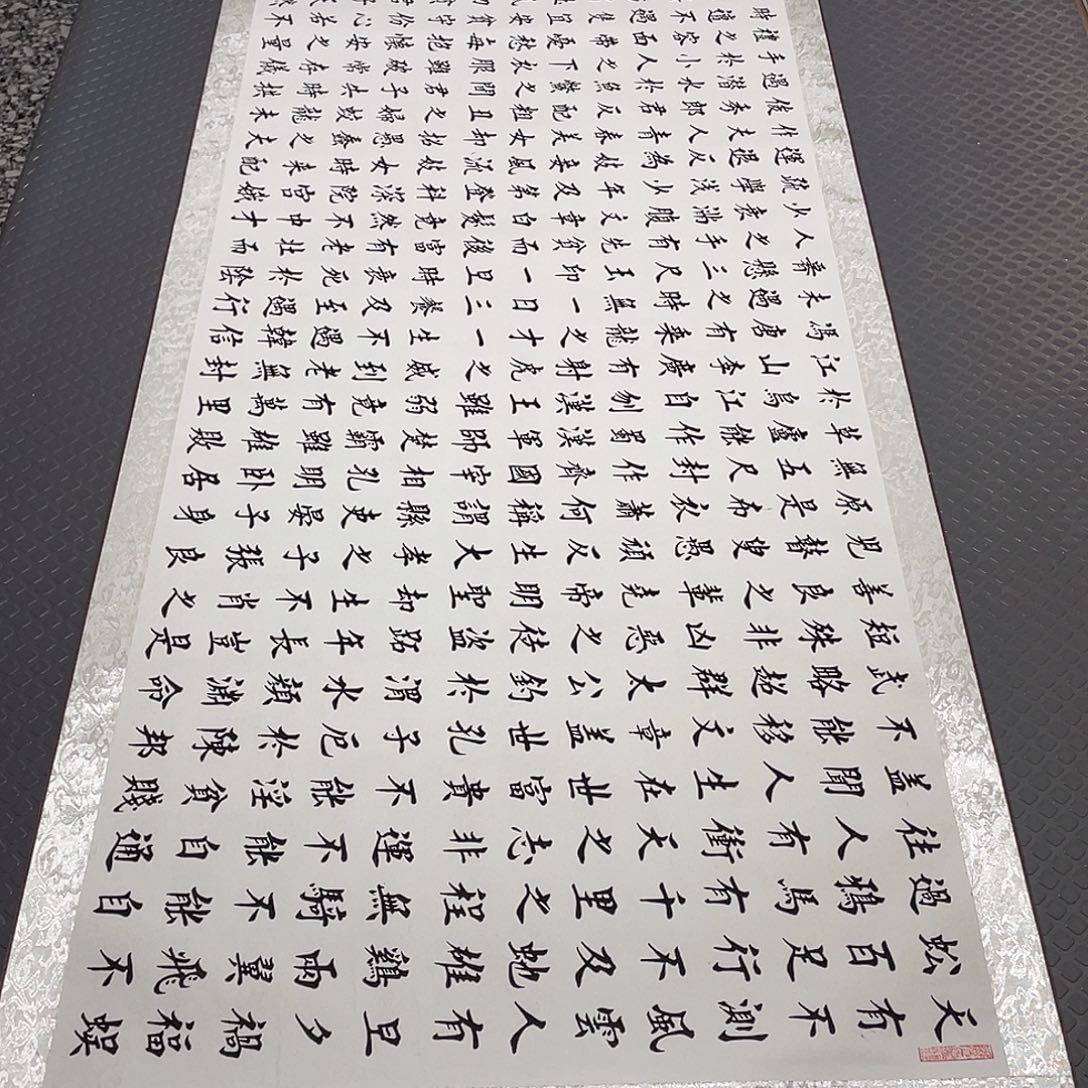 天有不測風雲人有旦夕禍福蜈
蚣百足行不及蛇雄雞兩翼飛不
過鴉馬有千里之程無騎不能自
往人有衝天之志非運不能自通
蓋聞人生在世富貴不能淫貧賤
不能移文章蓋世孔子厄於陳邦
武略超群太公釣於渭水顏淵命
短殊非凶惡之徒盜跖年長豈是
善良之輩堯帝明聖却生不肖之
兒瞽叟愚頑反生大孝之子張良
原是布衣蕭何稱謂縣吏晏子身
無五尺封作齊國宰相孔明臥居
草廬能作蜀漢軍師楚霸雖雄敗
於烏江自刎漢王雖弱竟有萬里
江山李廣有射虎之威到老無封
馮唐有乘龍之才一生不遇韓信
未遇之時無一日三餐及至遇行
齊懸三尺玉印一旦時衰死於陰
人之手有先貧而後富有老壯而
少衰滿腹文章白髮竟然不中才
疏學淺少年及第登科深院宮娥
運退反為妓妾風流妓女時來配
作夫人青春美女却招愚蠢之夫
俊秀郎君反配粗丑之婦蛟龍未
遇潛水於魚鱉之間君子失時拱
手於小人之下衣服雖破常存儀
禮之容面帶憂愁每抱懷安之量
時遭不遇宜安貧守份心若不